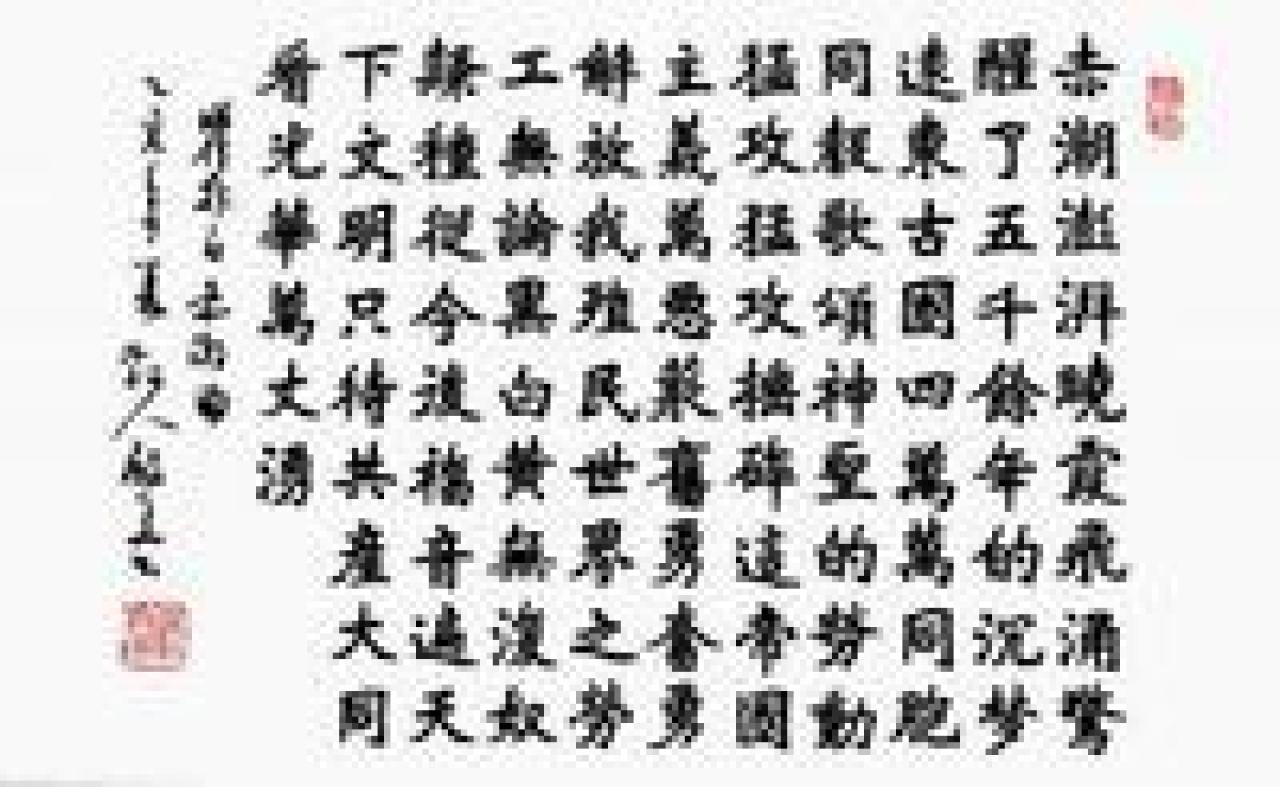 赤潮澎湃曉霞飛涌驚
醒了五千餘年的沉梦
遠東古國四萬萬同胞
同聲歌頌神聖的勞動
猛攻猛攻搥碎這帝國
主義萬惡叢奮勇奮勇
解放我殖民世界之勞
工無論黑白黃無復奴
隸種從今後福音遍天
下文明只待共產大同
看光華萬丈湧